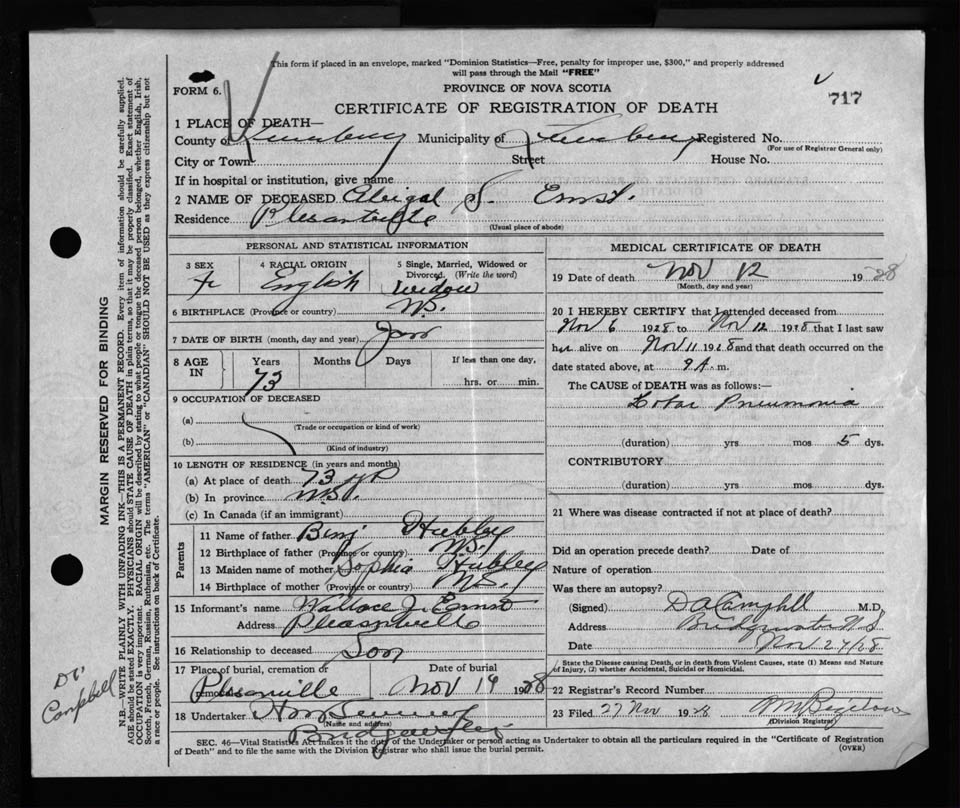 This form if placed in an envelope, marked "Dominion Statistics—Free, penalty for improper use, $300," and properly addressed
will pass through the Mail "FREE"
FORM 6.
PROVINCE OF NOVA SCOTIA
717
CERTIFICATE OF REGISTRATION OF DEATH
1 PLACE OF DEATH—
County of Lunenburg Municipality of Lunenburg Registered No.
(For use of Registrar General only)
City or Town Street House No.
If in hospital or institution, give name
2 NAME OF DECEASED Abigal S. Ernst.
Residence
(Usual place of abode)
PERSONAL AND STATISTICAL INFORMATION
3 SEX 4 RACIAL ORIGIN 5 Single, Married, Widowed or
Divorced. (Write the word)
English Widow
6 BIRTHPLACE (Province or country) N.S.
7 DATE OF BIRTH (month, day and year) Jan
8 AGE IN Years Months Days If less than one day,
73 hrs. or min.
9 OCCUPATION OF DECEASED
(a)
(Trade or occupation or kind of work)
(b)
(Kind of industry)
10 LENGTH OF RESIDENCE (in years and months)
(a) At place of death 73 yr
(b) In province N.S.
(c) In Canada (if an immigrant)
Parents
11 Name of father Benj Hubley
12 Birthplace of father (Province or country) N.S.
13 Maiden name of mother Sophia Hubley
14 Birthplace of mother (Province or country) N.S.
15 Informant's name Wallace J. Ernst
Address
16 Relationship to deceased Son
17 Place of burial, cremation or removal Date of burial
Nov 14 1928
18 Undertaker
(Name and address)
Bridgewater
MEDICAL CERTIFICATE OF DEATH
19 Date of death Nov 12 1928
(Month, day and year)
20 I HEREBY CERTIFY that I attended deceased from
Nov 6 1928 to Nov 12 1928 that I last saw
her alive on Nov 11 1928 and that death occurred on the
date stated above, at 9 A. m.
The CAUSE of DEATH was as follows:—
Lobar Pneumonia
(duration) yrs mos 5 dys.
CONTRIBUTORY
(duration) yrs mos dys.
21 Where was disease contracted if not at place of death?
Did an operation precede death? Date of
Nature of operation
Was there an autopsy?
(Signed) D A Campbell M.D.
Address Bridgewater N.S
Date Nov 24/28
State the Disease causing Death, or in death from Violent Causes, state (1) Means and Nature
of Injury, (2) whether Accidental, Suicidal or Homicidal.
22 Registrar's Record Number
23 Filed 27 Nov 1928
(Division Registrar)
SEC. 46—Vital Statistics Act makes it the duty of the Undertaker or person acting as Undertaker to obtain all the particulars required in the "Certificate of Registration
of Death" and to file the same with the Division Registrar who shall issue the burial permit. (OVER)
MARGIN RESERVED FOR BINDING
N.B.—WRITE PLAINLY WITH UNFADING INK—THIS IS A PERMANENT RECORD. Every item of information should be carefully supplied.
AGE should be stated EXACTLY. PHYSICIANS should STATE CAUSE OF DEATH in plain terms, so that it may be properly classified. Exact statement of
OCCUPATION is very important. RACIAL ORIGIN will be described by stating to what people or tongue the deceased person belonged, whether English, Irish,
Scotch, French, German, Russian, Ruthenian, etc. The terms "AMERICAN" or "CANADIAN" SHOULD NOT BE USED as they express citizenship but not
a race or people. See instructions on back of Certificate.
Dr
Campbell